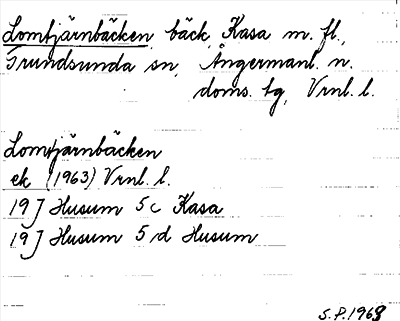 Lomtjärnbäcken, bäck, Kasa m. fl.,
Grundsunda sn, Ångermanl. n.
doms. tg, Vrnl. l.
Lomtjärnbäcken
ek (1963) Vrnl. l.
19 J Husum 5 c Kasa
19 J Husum 5 d Husum
S.P. 1968